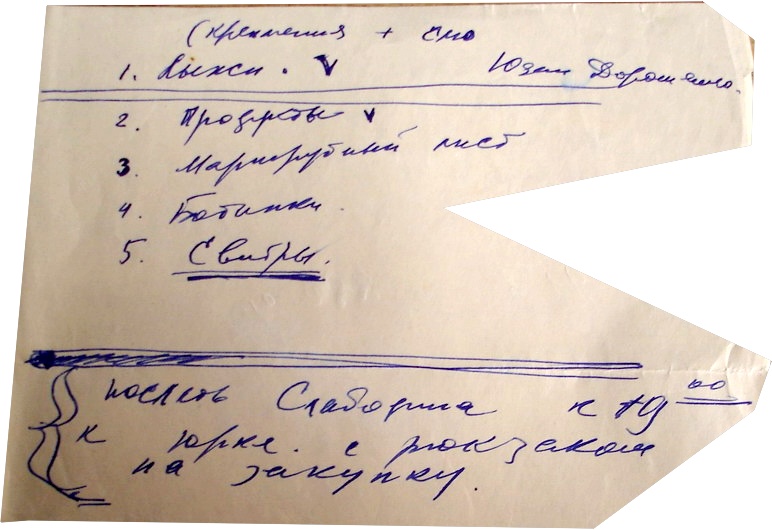 (крепления + смо
1. Лыжи. Юзом Дорошенко.
2. Продукты
3. Маршрутный лист
4. Ботинки.
5. Свитры.
послать Слабодина к 19 00
к Юрке. с рюкзаком
на закупку.